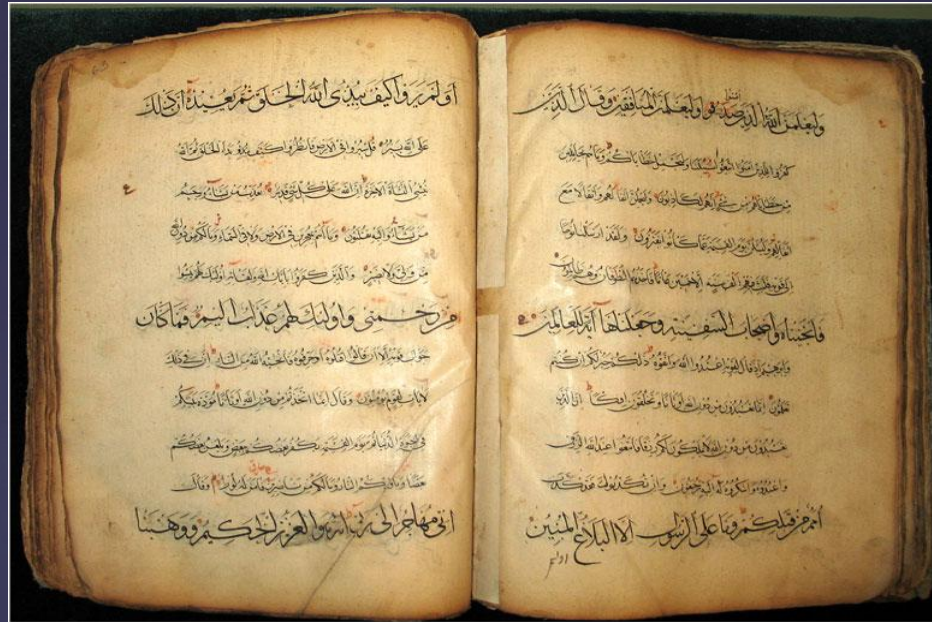 وليعلمن الله الذين صدقوا وليعلمن المنافقين وقال الذين
كفروا للذين امنوا اتبعوا سبيلنا ولنحمل خطاياكم وما هم بحاملين
من خطاياهم من شيء انهم لكاذبون وليحملن اثقالهم واثقالا مع
اثقالهم وليسئلن يوم القيمة عما كانوا يفترون ولقد ارسلنا نوحا
الى قومه فلبث فيهم الف سنة الا خمسين عاما فاخذهم الطوفان وهم ظالمون
فانجيناه واصحاب السفينة وجعلناها آية للعالمين
وابرهيم اذ قال لقومه اعبدوا الله واتقوه ذلكم خير لكم ان كنتم
تعلمون انما تعبدون من دون الله اوثانا وتخلقون افكا ان الذين
تعبدون من دون الله لا يملكون لكم رزقا فابتغوا عند الله الرزق
واعبدوه واشكروا له اليه ترجعون وان تكذبوا فقد كذب
امم من قبلكم وما على الرسول الا البلاغ المبين
اولم
اولم يروا كيف يبدئ الله الخلق ثم يعيده ان ذلك
على الله يسير قل سيروا في الارض فانظروا كيف بدا الخلق ثم الله
ينشئ النشاة الاخرة ان الله على كل شئ قدير يعذب من يشاء ويرحم
من يشاء واليه تقلبون وما انتم بمعجزين في الارض ولا في السماء وما لكم من دون الله
من ولي ولا نصير والذين كفروا بايات الله ولقائه اولئك يئسوا
من رحمتي واولئك لهم عذاب اليم فما كان
جواب قومه الا ان قالوا اقتلوه او حرقوه فانجيه الله من النار ان في ذلك
لايات لقوم يؤمنون وقال انما اتخذتم من دون الله اوثانا مودة بينكم
في الحيوة الدنيا ثم يوم القيمة يكفر بعضكم ببعض ويلعن بعضكم
بعضا وماويكم النار وما لكم من ناصرين فامن له لوط وقال
اني مهاجر الى ربي انه هو العزيز الحكيم ووهبنا